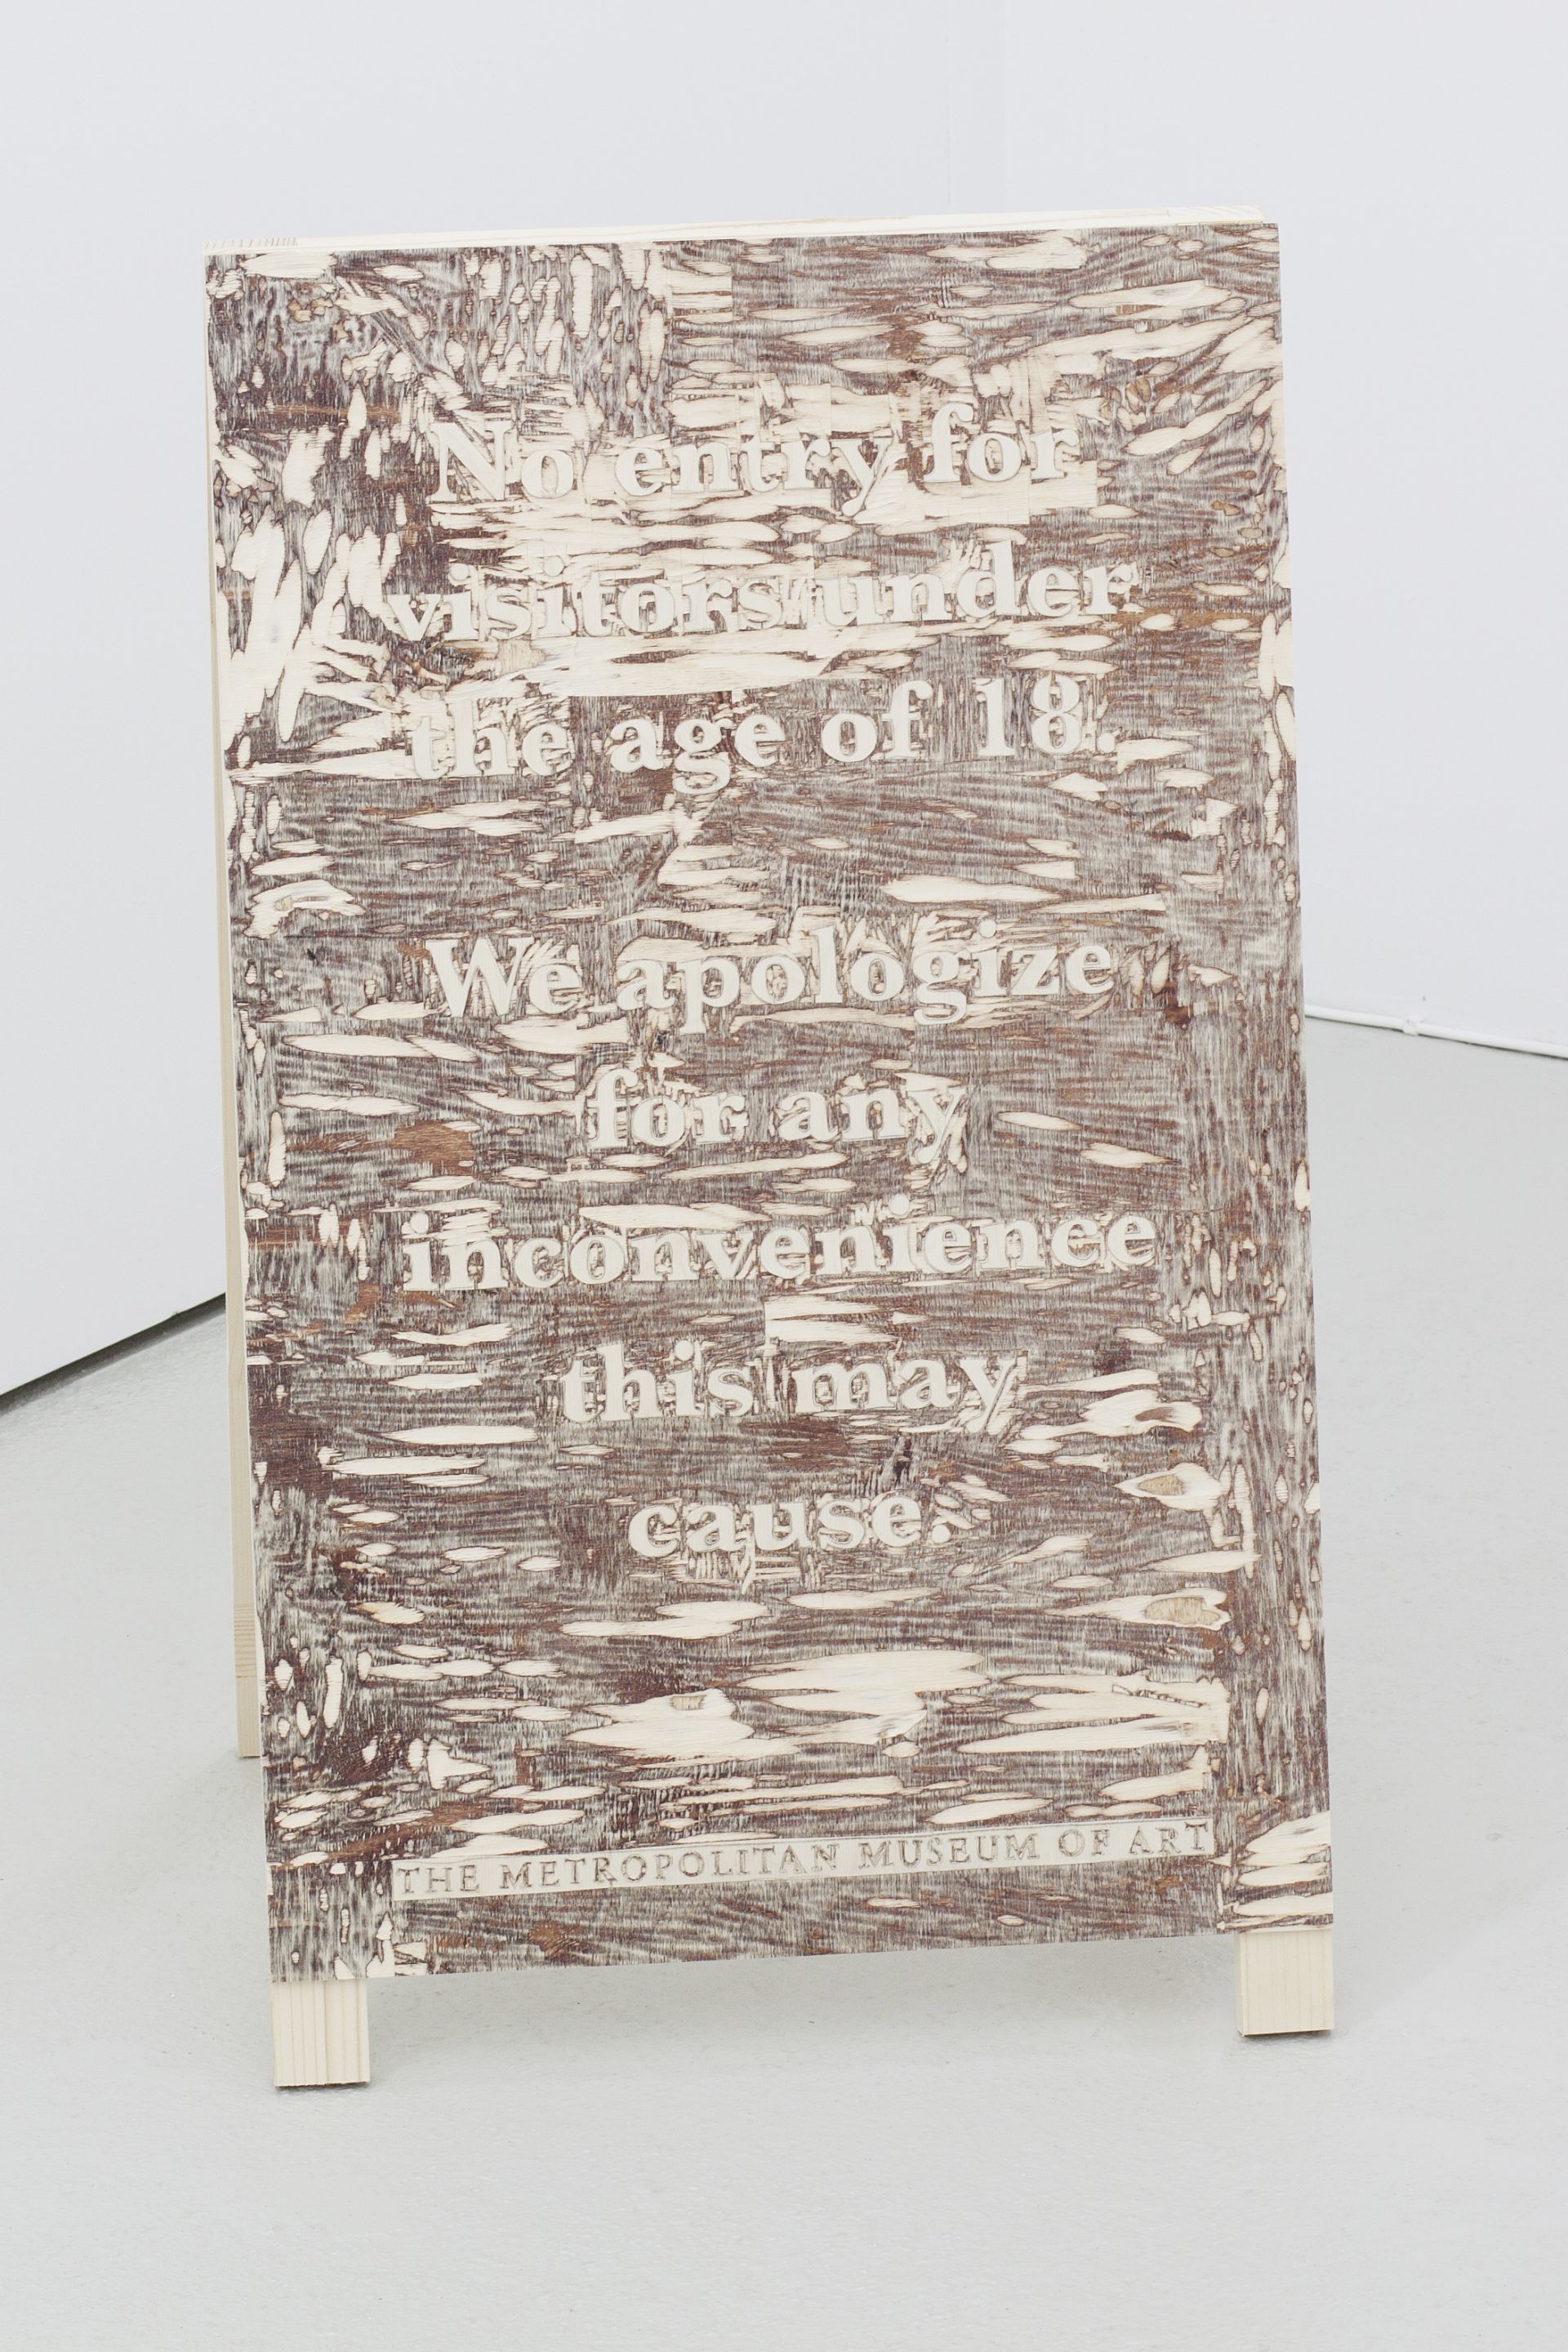 No entry for
visitors under
the age of 18.
We apologize
for any
inconvenience
this may
cause.
THE METROPOLITAN MUSEUM OF ART